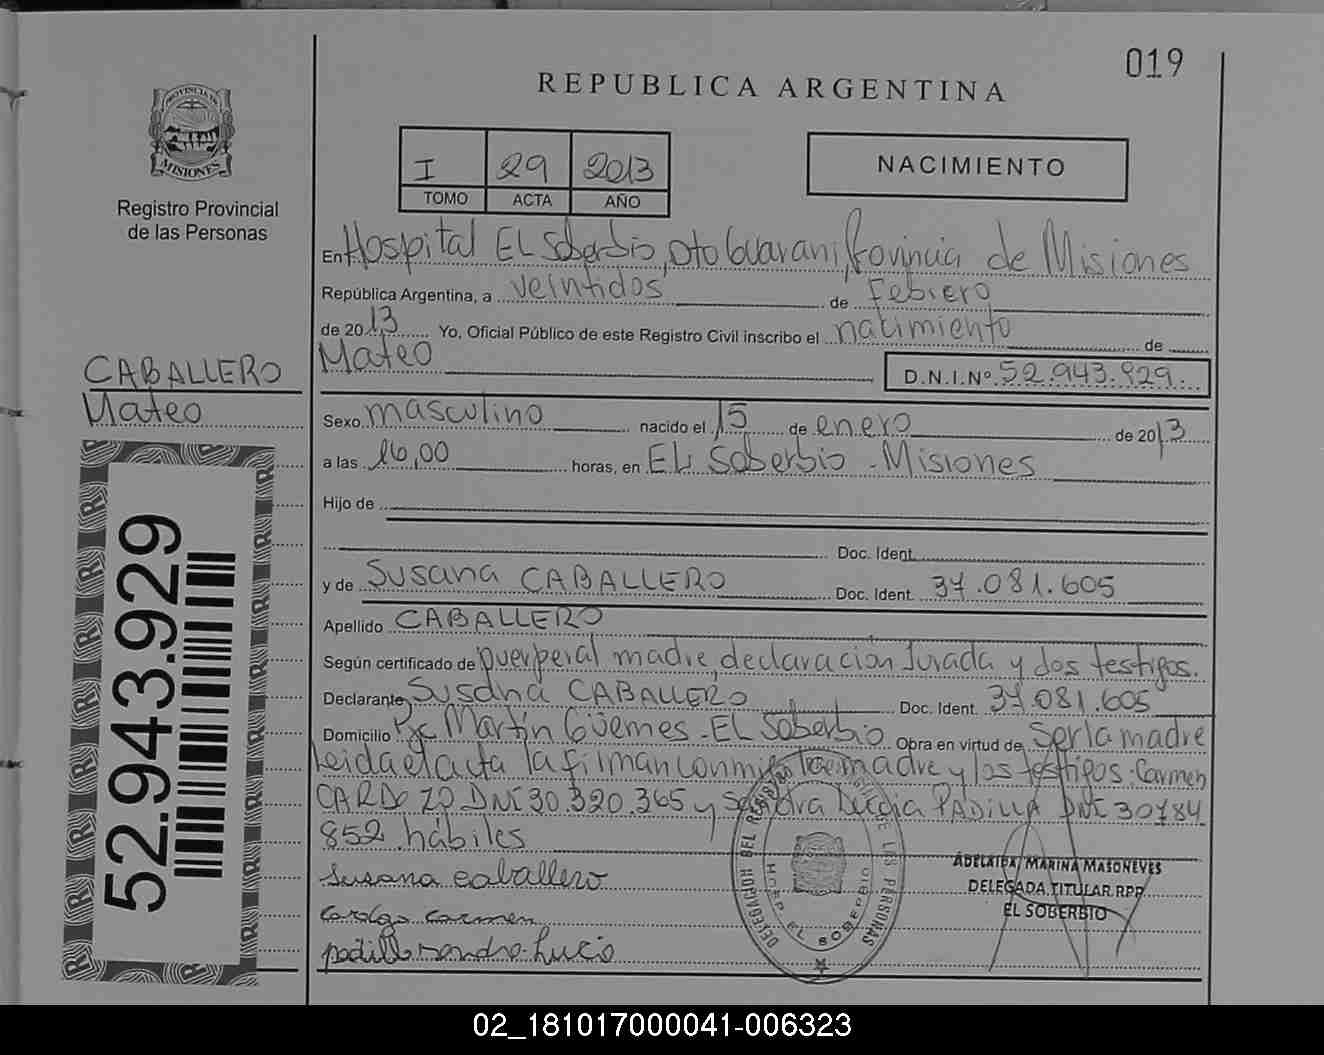 019
REPUBLICA ARGENTINA
PROVINCIA DE
MISIONES
Registro Provincial
de las Personas
I 29 2013
TOMO ACTA AÑO
NACIMIENTO
En Hospital EL Soberbio, Dto Guarani, Provincia de Misiones
República Argentina, a veintidos de Febrero
de 2013 Yo, Oficial Público de este Registro Civil inscribo el nacimiento de
Mateo D.N.I.Nº 52.943.929
CABALLERO
Mateo
Sexo masculino nacido el 15 de enero de 2013
a las 16,00 horas, en EL Soberbio - Misiones
Hijo de
Doc. Ident.
y de Susana CABALLERO Doc. Ident. 37.081.605
Apellido CABALLERO
Según certificado de puerperal madre, declaracion Jurada y dos testigos.
Declarante Susana CABALLERO Doc. Ident. 37.081.605
Domicilio Martín Güemes - EL Soberbio Obra en virtud de Ser la madre
Leida el acta la firman conmigo la madre y los testigos: Carmen
CARDOZO DNI 30.320.365 y Sandra Lucia PADILLA DNI 30784
852 hábiles
Susana Caballero
Cardozo Carmen
padilla sandra Lucia
52.943.929
ADELAIDA MARINA MASONEVES
DELEGADA TITULAR RPP
EL SOBERBIO
HOSP. EL SOBERBIO
02_181017000041-006323